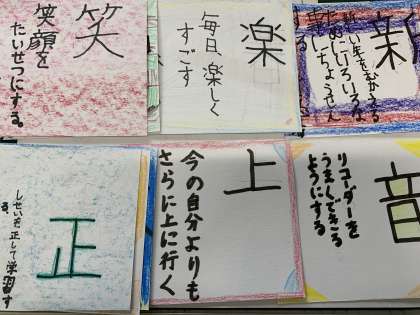 笑
笑顔を
たいせつにする。
楽
毎日、楽しく
すごす
新
新しい年をむかえる
ためにいろいろな
ちょうせん
正
しせいを正して学習す
る。
上
今の自分よりも
さらに上に行く
音
リコーダーを
うまくできる
ようにする